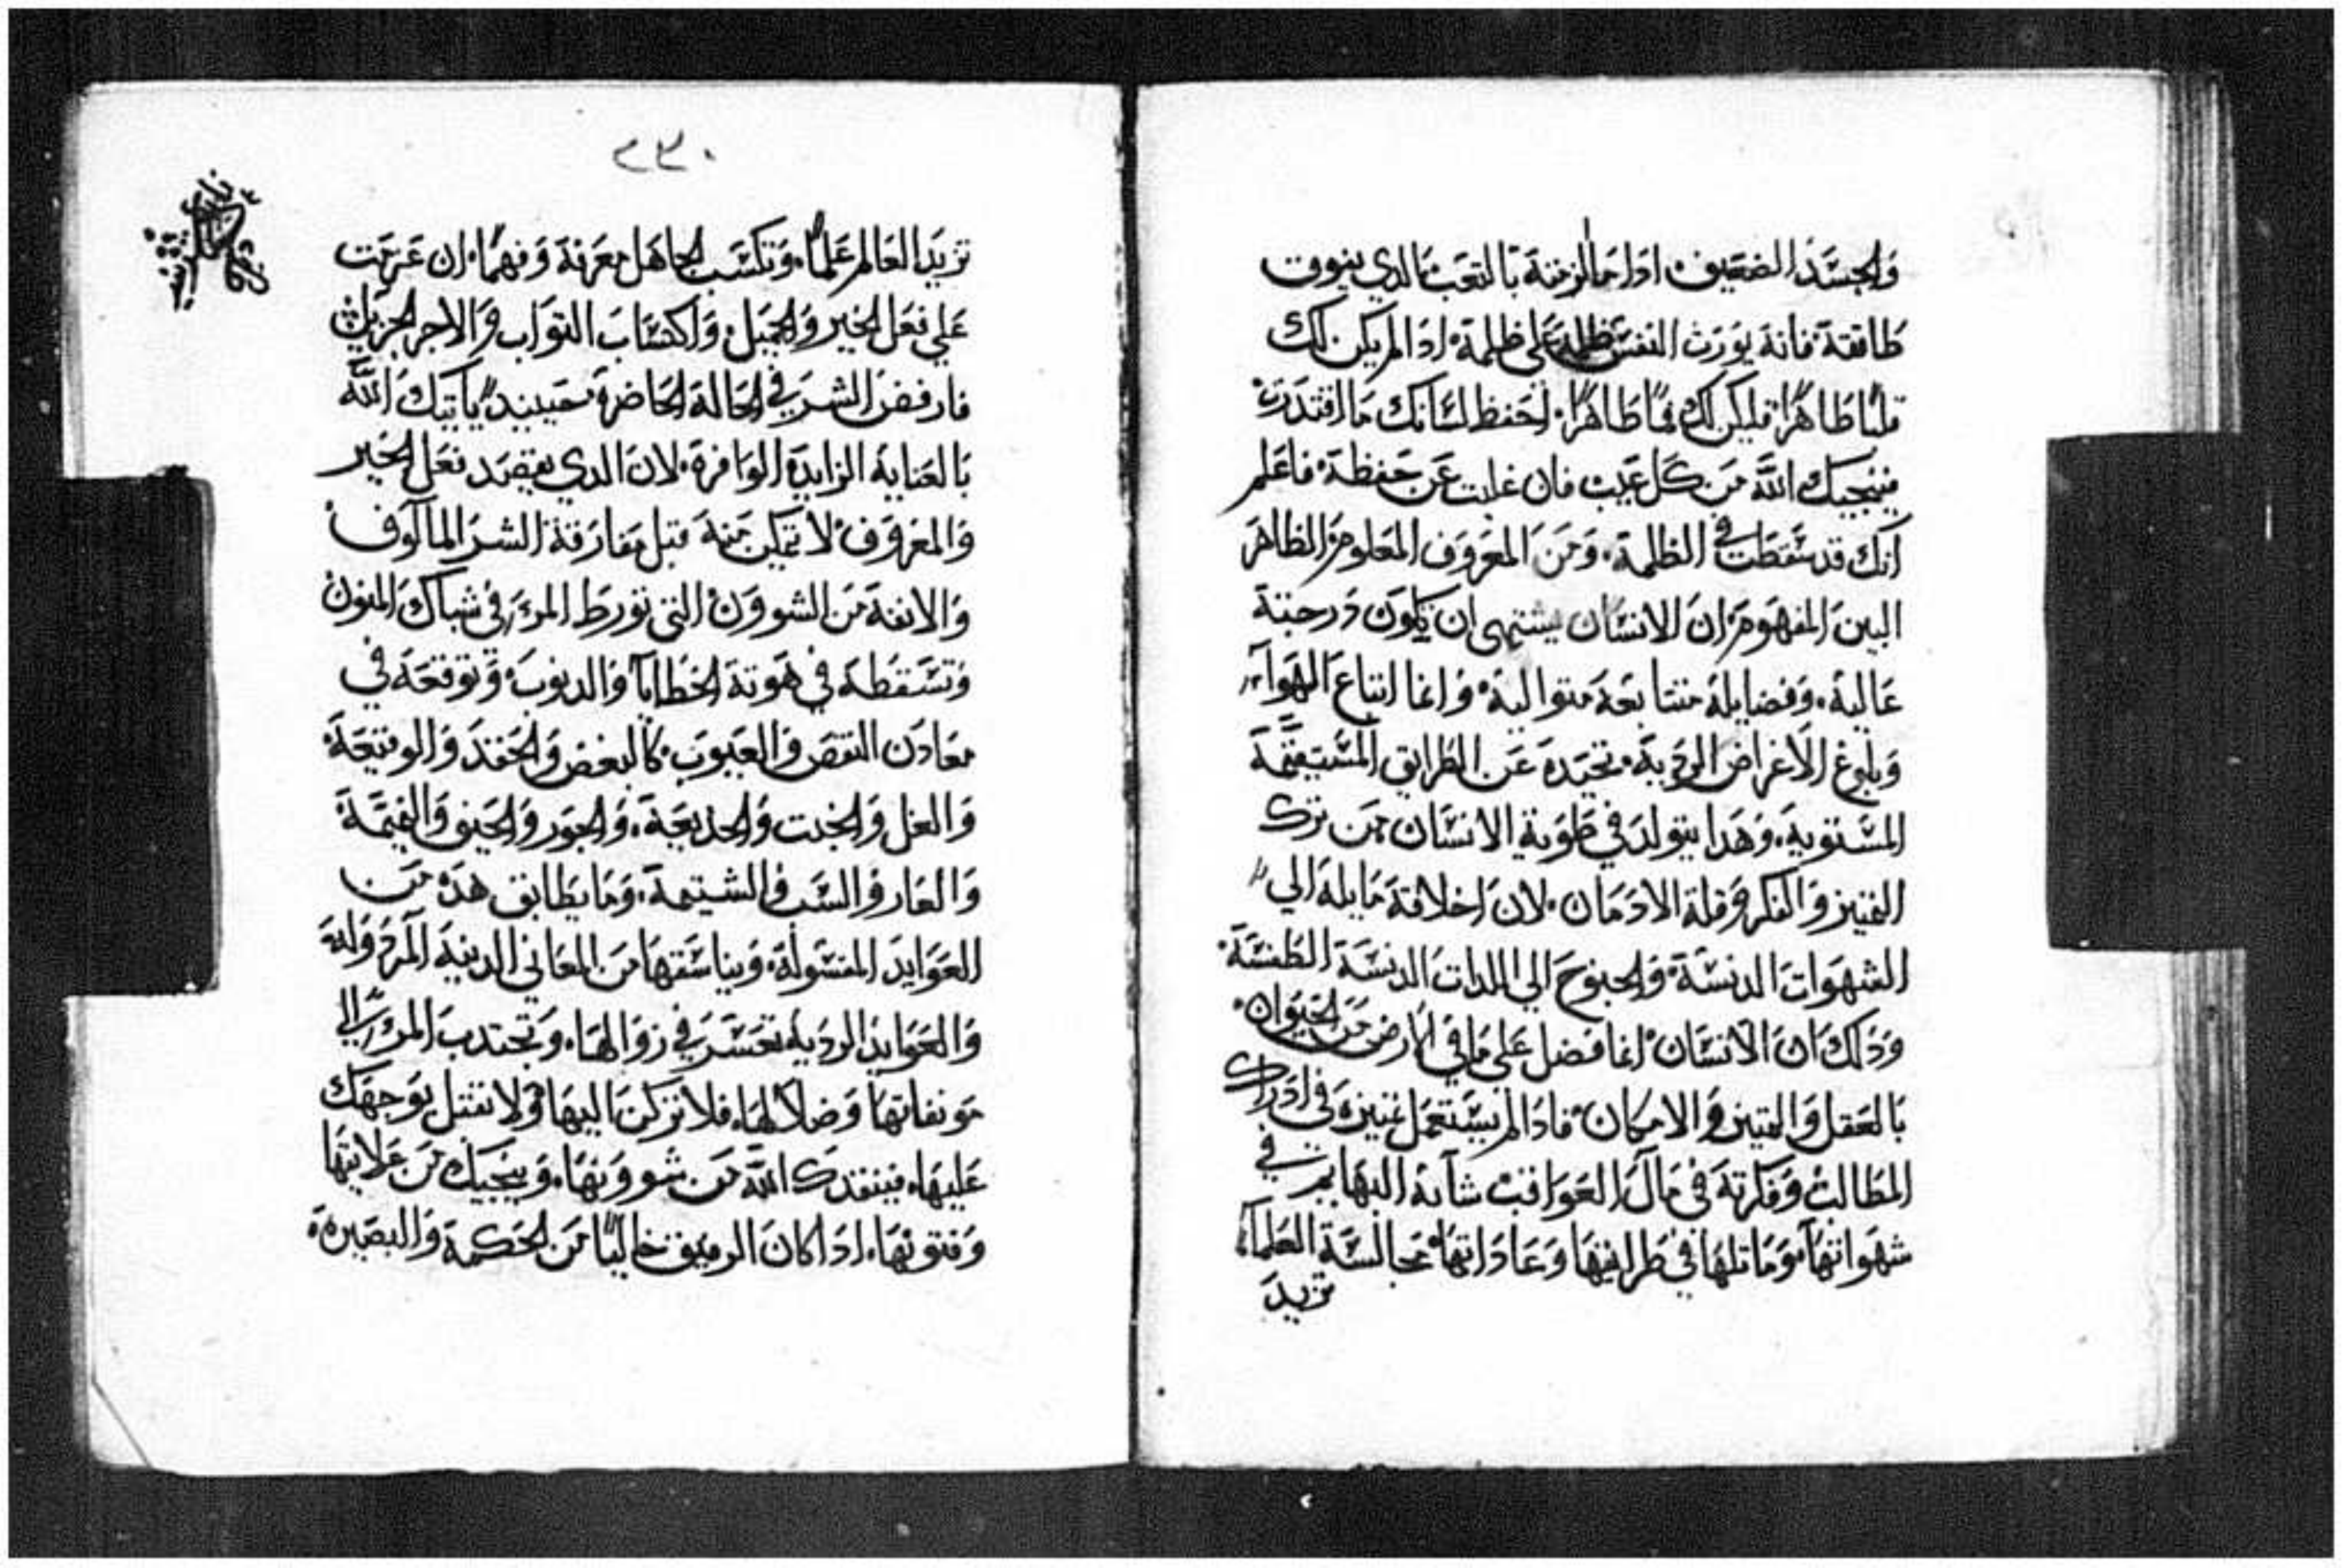 والجسد الضعيف ادا ما الزمته بالتعب الدي يفوق
طاقته فانه يورث النفس ظلمة علي ظلمة ادا لم يكن لك
قلبًا طاهرًا فليكن لك فمًا طاهرًا احفظ لسانك ما اقتدرت
فينجيك الله من كل عيب فان غلبت عن حفظه فاعلم
انك قد سقطت في الظلمة ومن المعروف المعلوم الظاهر
البين المفهوم ان الانسان يشتهي ان تكون درجته
عالية وفضايله متتابعة متوالية وانما اتباع الهواء
وبلوغ الاغراض الردية تحيده عن الطرايق المستقيمة
المستوية وهدا يتولد في طوية الانسان من ترك
التميز والفكر وقلة الادمان لان اخلاقه مايلة الي
الشهوات الدنسة والجنوح الي اللدات الدنسة الطفسة
ودلك ان الانسان انما فضل علي ما في الارض من الحيوان
بالعقل والتميز والامكان فادا لم يستعمل تميزه في ادراك
المطالب وفكرته في مآل العواقب شابه البهايم في
شهواتها وماثلها في طرايقها وعاداتها مجالسة العلماء
تزيد
٢٣٠
تزيد العالم علمًا وتكسب الجاهل معرفة وفهمًا ان عزمت
علي فعل الخير والجميل واكتساب التواب والاجر الجزيل
فارفض الشر في الحالة الحاضرة حينيد ياتيك الله
بالعناية الزايدة الوافرة لان الدي يقصد فعل الخير
والمعروف لا يتمكن منه قبل مفارقة الشر المالوف
والانفة من الشوون التي تورط المرء في شباك المنون
وتسقطه في هوتة الخطايا والدنوب وتوقعه في
معادن النقص والعيوب كالبغض والحقد والوقيعة
والغل والخبت والخديعة والجور والحيف والنميمة
والعار والسب والشتيمة وما يطابق هده من
العوايد المردولة
والعوايد الردية تعسر في زوالها وتجتدب المرء الي
موبقاتها وضلالها فلا تركن اليها ولا تقبل بوجهك
عليها فينقدك الله من شوونها وينجيك من
وفتونها ادا كان الرفيق خاليًا من الحكمة والبصيرة